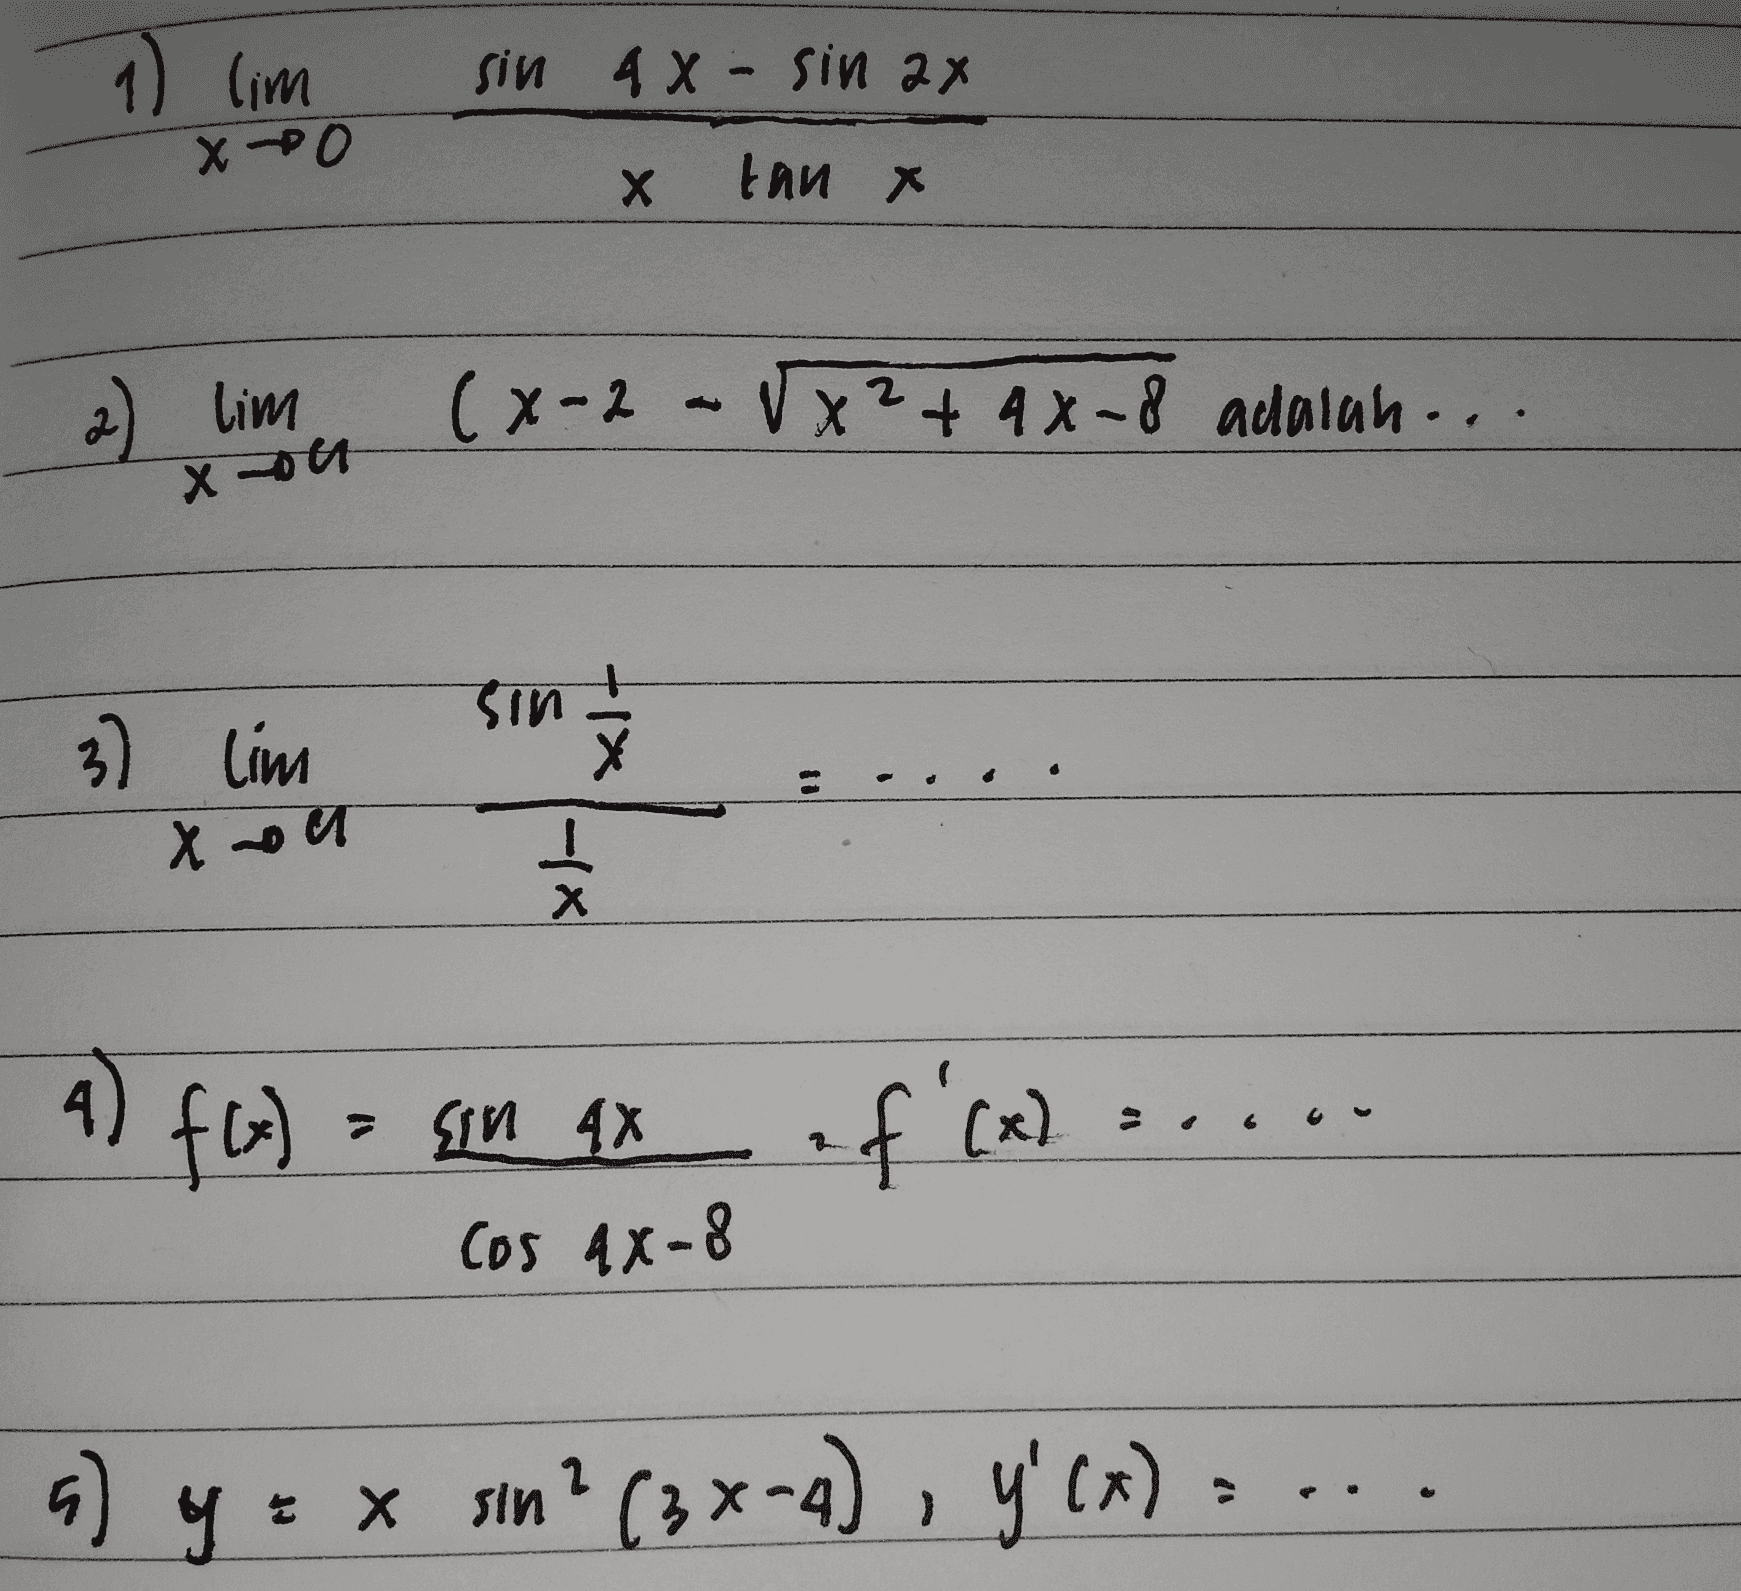 1) lim sin 4x - sin 2x
x→0 x tan x
2) lim (x-2 - √x²+4x-8 adalah...
x→
3) lim sin 1/x = ....
x→ 1/x
4) f(x) = sin 4x , f'(x) = ....
cos 4x-8
5) y = x sin² (3x-4) , y'(x) = ...